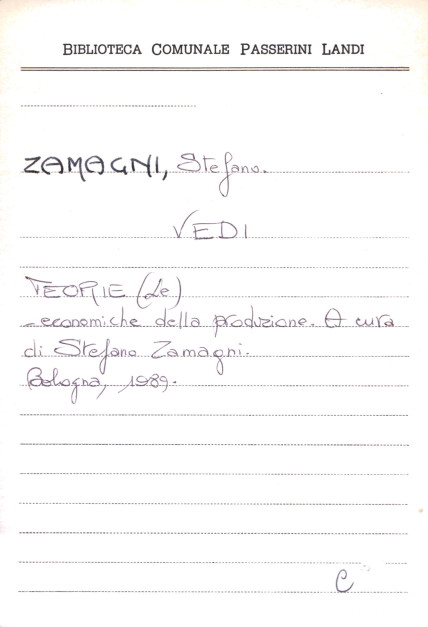 BIBLIOTECA COMUNALE PASSERINI LANDI
ZAMAGNI, Stefano.
VEDI
TEORIE (Le)
- economiche della produzione. A cura
di Stefano Zamagni.
Bologna, 1989.
C